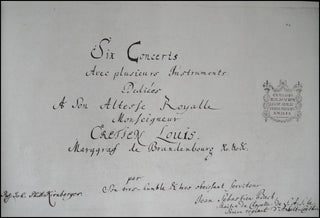 Six Concerts
Avec plusieurs Instruments
Dediées
A Son Altesse Royalle
Monseigneur
CRETIEN LOUIS.
Marggraf de Brandenbourg &c:&c:&c:
par
Son tres-humble & tres obeissant serviteur
Jean Sebastien Bach
Maitre de Chapelle de S.A.S. le
Prince regnant d'Anhalt-Coethen